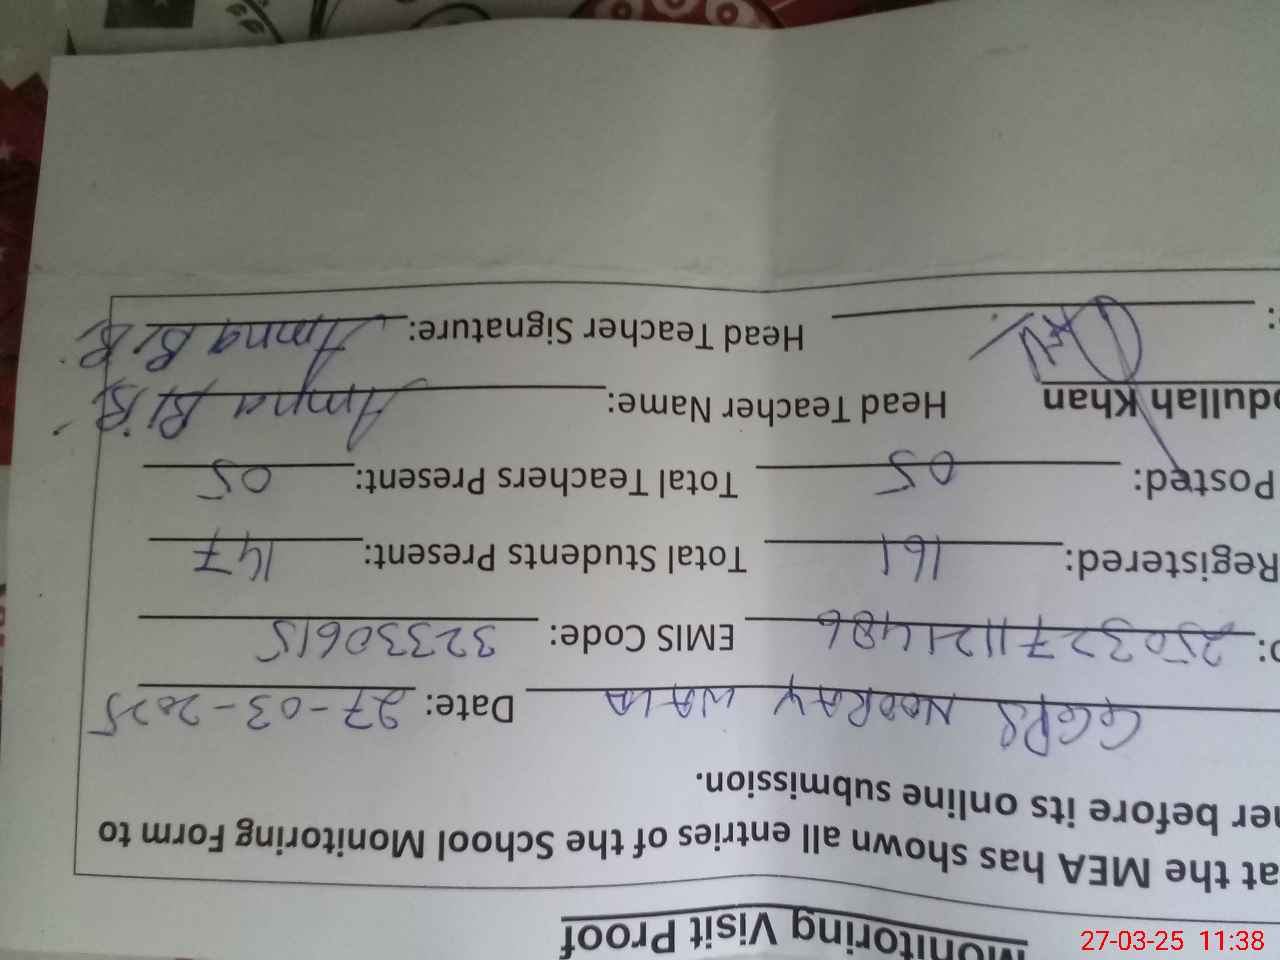 Monitoring Visit Proof
at the MEA has shown all entries of the School Monitoring Form to
her before its online submission.
GGPS NOORAY WALA Date: 27-03-2025
: 2503271121486 EMIS Code: 32330615
Registered: 161 Total Students Present: 147
Posted: 05 Total Teachers Present: 05
dullah Khan Head Teacher Name: Amna BiBi
: Head Teacher Signature: Amna BiBi
27-03-25 11:38